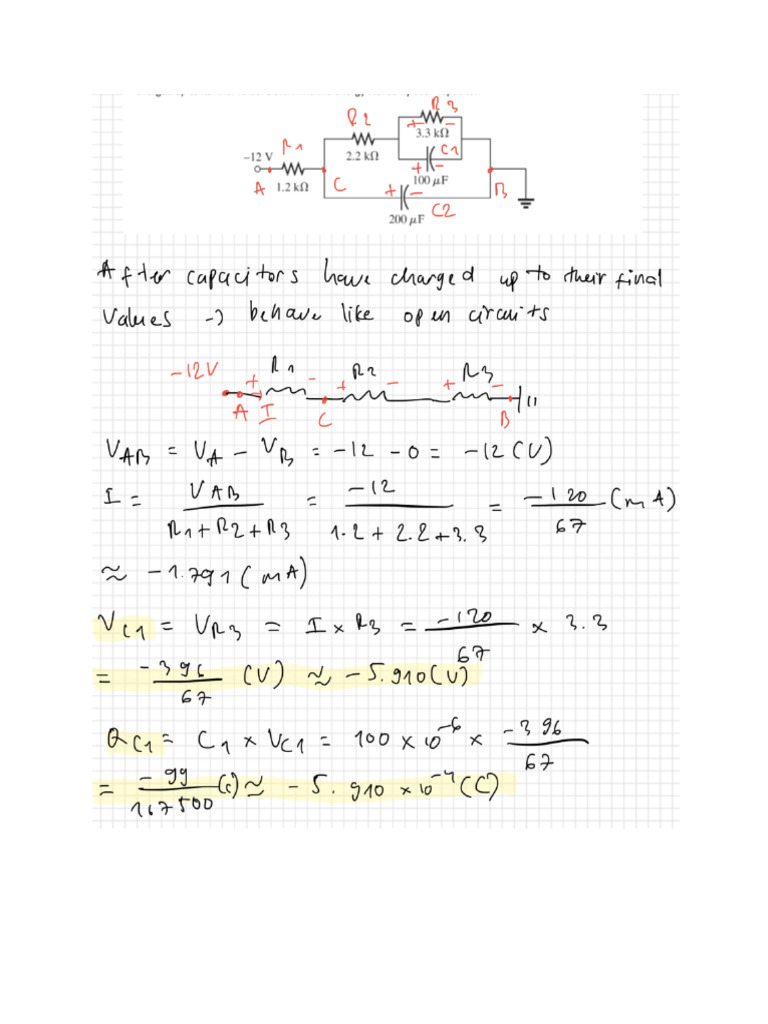 R2
R3
+ -
3.3 kΩ
-12 V
R1
2.2 kΩ
C1
+ -
100 μF
A
1.2 kΩ
C
+ -
B
200 μF
C2
After capacitors have charged up to their final
values -> behave like open circuits
-12V
+ R1 -
+ R2 -
+ R3 -
A I C B
V_AB = V_A - V_B = -12 - 0 = -12 (V)
I = V_AB / (R1 + R2 + R3) = -12 / (1.2 + 2.2 + 3.3) = -120 / 67 (mA)
≈ -1.791 (mA)
V_C1 = V_R3 = I × R3 = -120 / 67 × 3.3
= -396 / 67 (V) ≈ -5.910 (V)
Q_C1 = C1 × V_C1 = 100 × 10^-6 × -396 / 67
= -99 / 167500 (C) ≈ -5.910 × 10^-4 (C)